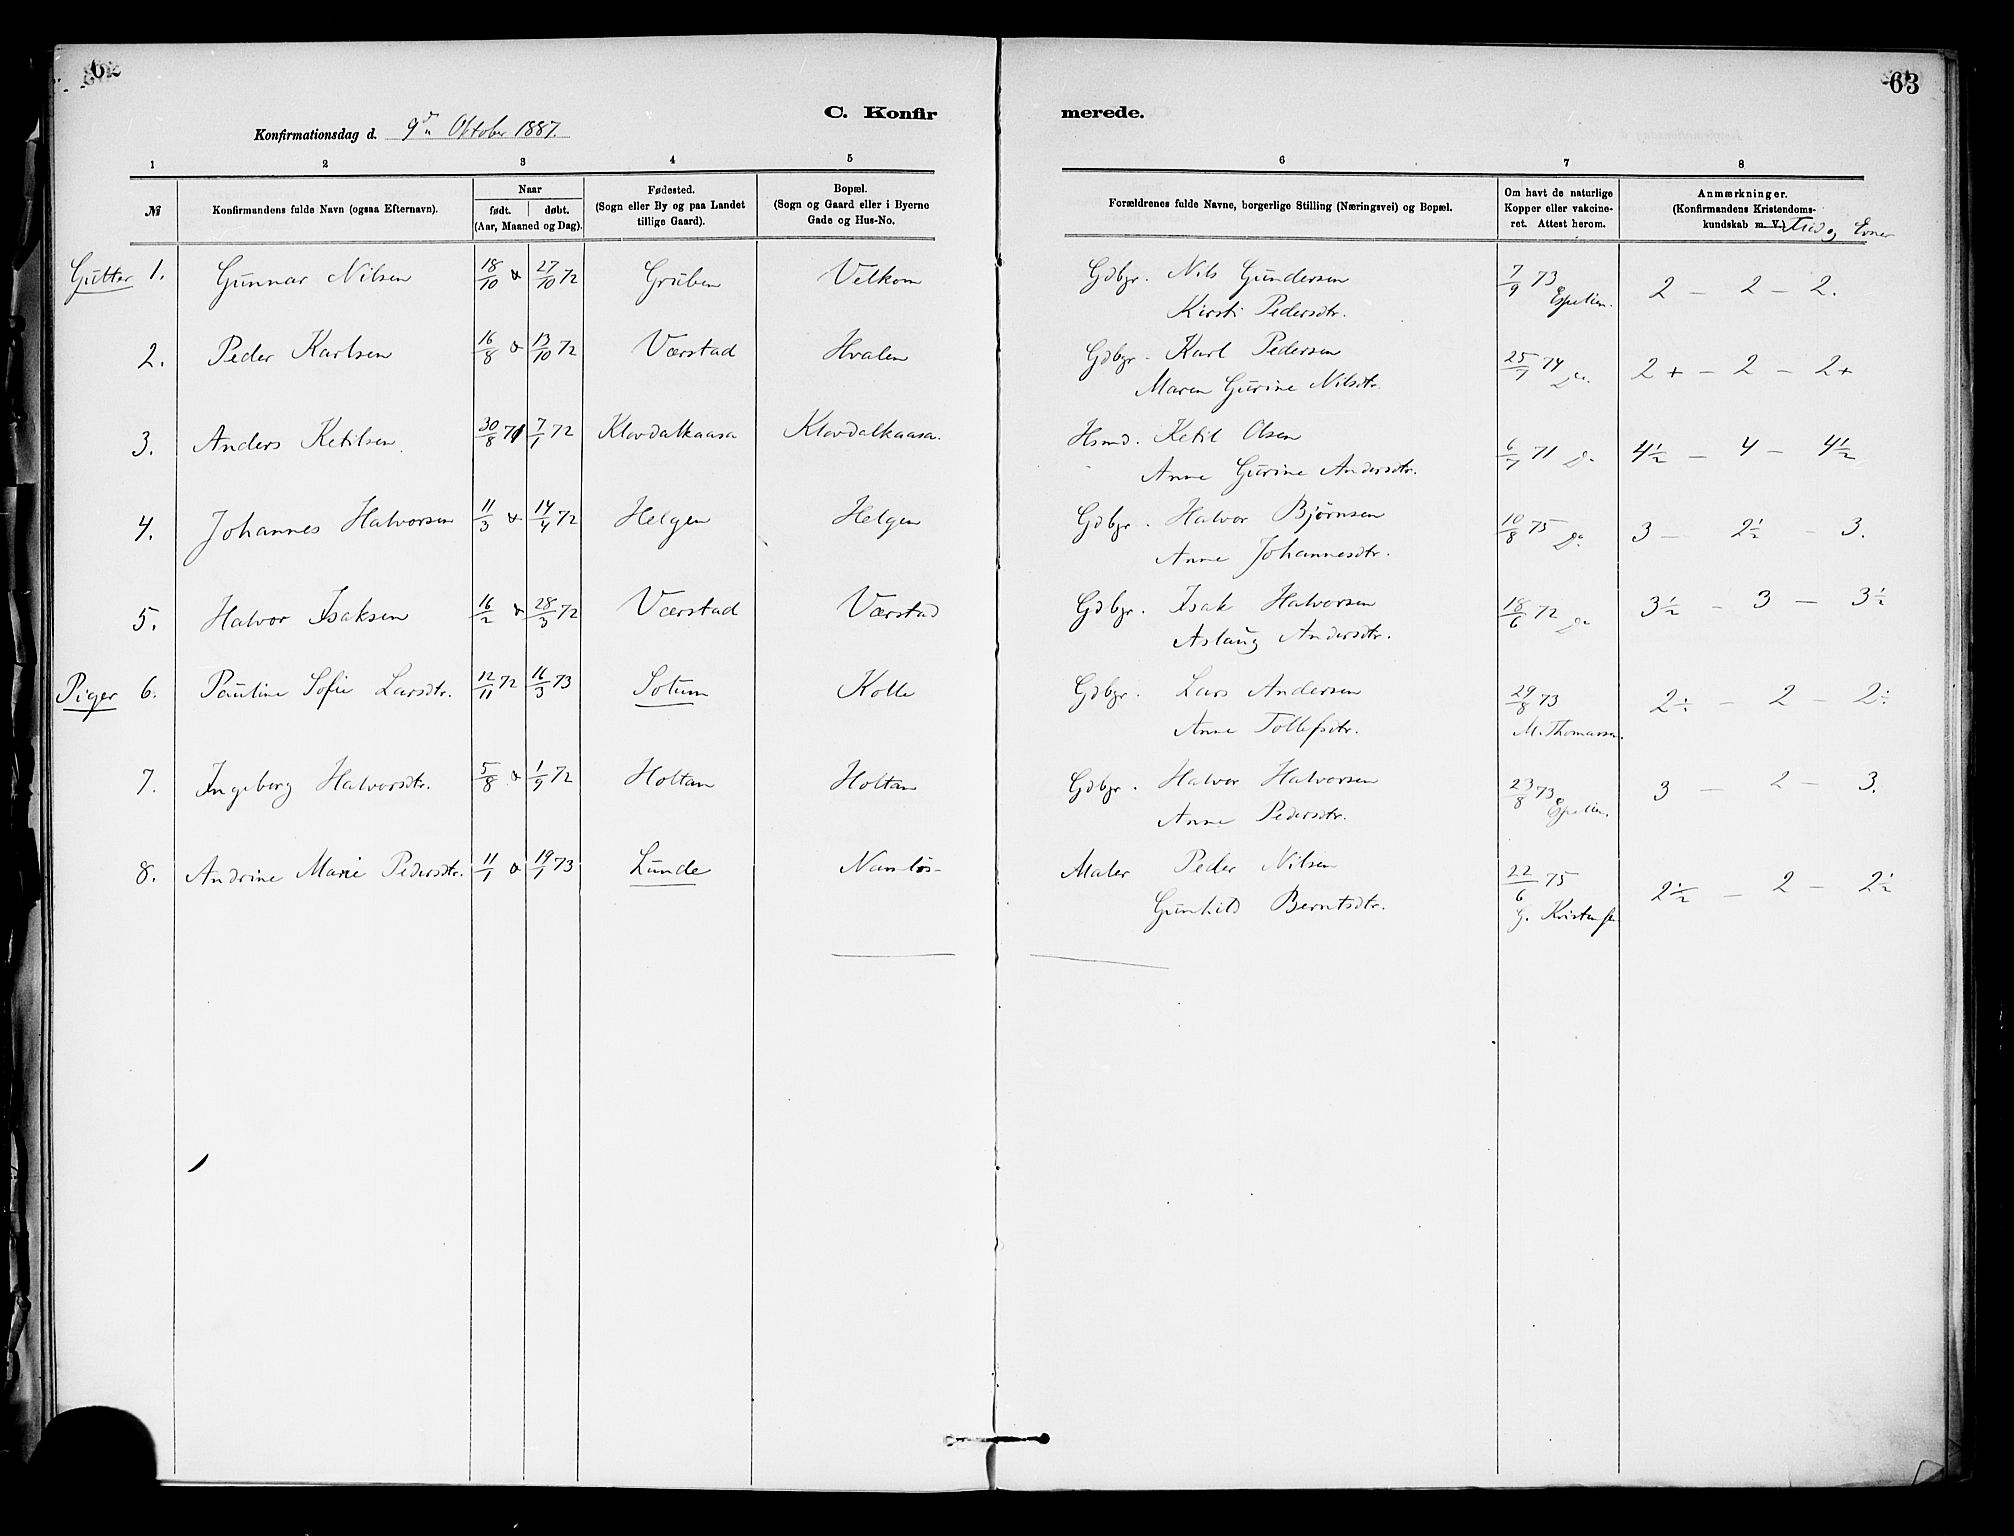 63
C. Konfirmerede.
Konfirmationsdag d. 9de Oktober 1887.
1 2 3 4 5 6 7 8
№
Konfirmandens fulde Navn (ogsaa Efternavn).
Naar
født. døbt.
(Aar, Maaned og Dag).
Fødested.
(Sogn eller By og paa Landet
tillige Gaard).
Bopæl.
(Sogn og Gaard eller i Byerne
Gade og Hus-No.
Forældrenes fulde Navne, borgerlige Stilling (Næringsvei) og Bopæl.
Om havt de naturlige
Kopper eller vakcine-
ret. Attest herom.
Anmærkninger.
(Konfirmandens Kristendoms-
kundskab m. V.) Flid og Evner
Gutter 1. Gunnar Nilsen 18/10 & 27/10 72 Gruben Velkom Gdbgr. Nils Gundersen 7/9 73 Espelien. 2 - 2 - 2.
Kirsti Pedersdtr.
2. Peder Karlsen 16/8 & 13/10 72 Værstad Hvalen Gdbgr. Karl Pedersen 25/7 74 Do. 2+ - 2 - 2+
Maren Gurine Nilsdtr.
3. Anders Ketilsen 30/8 71 7/1 72 Klovdalkaasa Klovdalkaasa. Hsmd. Ketil Olsen 6/7 71 Do 4½ - 4 - 4½
Anne Gurine Andersdtr.
4. Johannes Halvorsen 11/3 & 14/4 72 Helgen Helgen Gdbgr. Halvor Bjørnsen 10/8 75 Do. 3 - 2½ - 3.
Anne Johannesdtr.
5. Halvor Isaksen 16/2 & 28/3 72 Værstad Værstad Gdbgr. Isak Halvorsen 18/6 72 Do 3½ - 3 - 3½
Aslaug Andersdtr.
Piger 6. Pauline Sofie Larsdtr. 12/11 72 16/3 73 Sotum Kolle Gdbgr. Lars Andersen 29/8 73 2÷ - 2 - 2÷
Anne Tollefsdtr. M. Thomassen.
7. Ingeborg Halvorsdtr. 5/8 & 1/9 72 Holtan Holtan Gdbgr. Halvor Halvorsen 23/8 73 Espelien. 3 - 2 - 3.
Anne Pedersdtr.
8. Andrine Marie Pedersdtr. 11/1 & 19/1 73 Lunde Namløs- Maler Peder Nilsen 22/6 75 2½ - 2 - 2½
Gunhild Berntsdtr. G. Kristensen